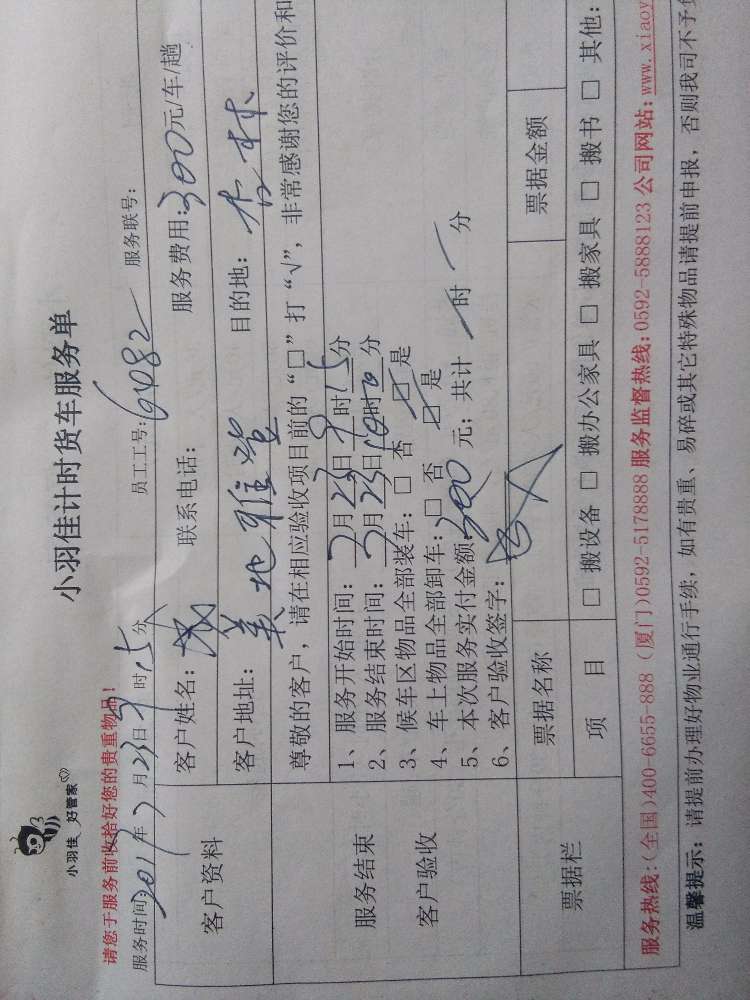 小羽佳 好管家
小羽佳计时货车服务单
请您于服务前收拾好您的贵重物品！
服务时间: 年 月23日 时15分 员工工号: 服务联号:
客户资料
客户姓名: 联系电话: 服务费用:300元/车/趟
客户地址: 美地雅登 目的地: 杏林
尊敬的客户，请在相应验收项目前的“□”打“√”，非常感谢您的评价和
服务结束
客户验收
1、服务开始时间: 月23日 时15分
2、服务结束时间: 月23日10时 分
3、候车区物品全部装车: □ 否 ☑ 是
4、车上物品全部卸车: □ 否 ☑ 是
5、本次服务实付金额 300 元; 共计 时 分
6、客户验收签字:
票据栏
票据名称 票据金额
项 目 □ 搬设备 □ 搬办公家具 □ 搬家具 □ 搬书 □ 其他:
服务热线:(全国)400-6655-888 (厦门)0592-5178888 服务监督热线:0592-5888123 公司网站: www.xiaoy
温馨提示: 请提前办理好物业通行手续，如有贵重、易碎或其它特殊物品请提前申报，否则我司不予